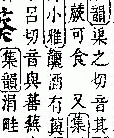 韻渠之切音其
蕨可食 又集
小雅釃酒有藇
呂切音與蕃蕪
集韻涓畦